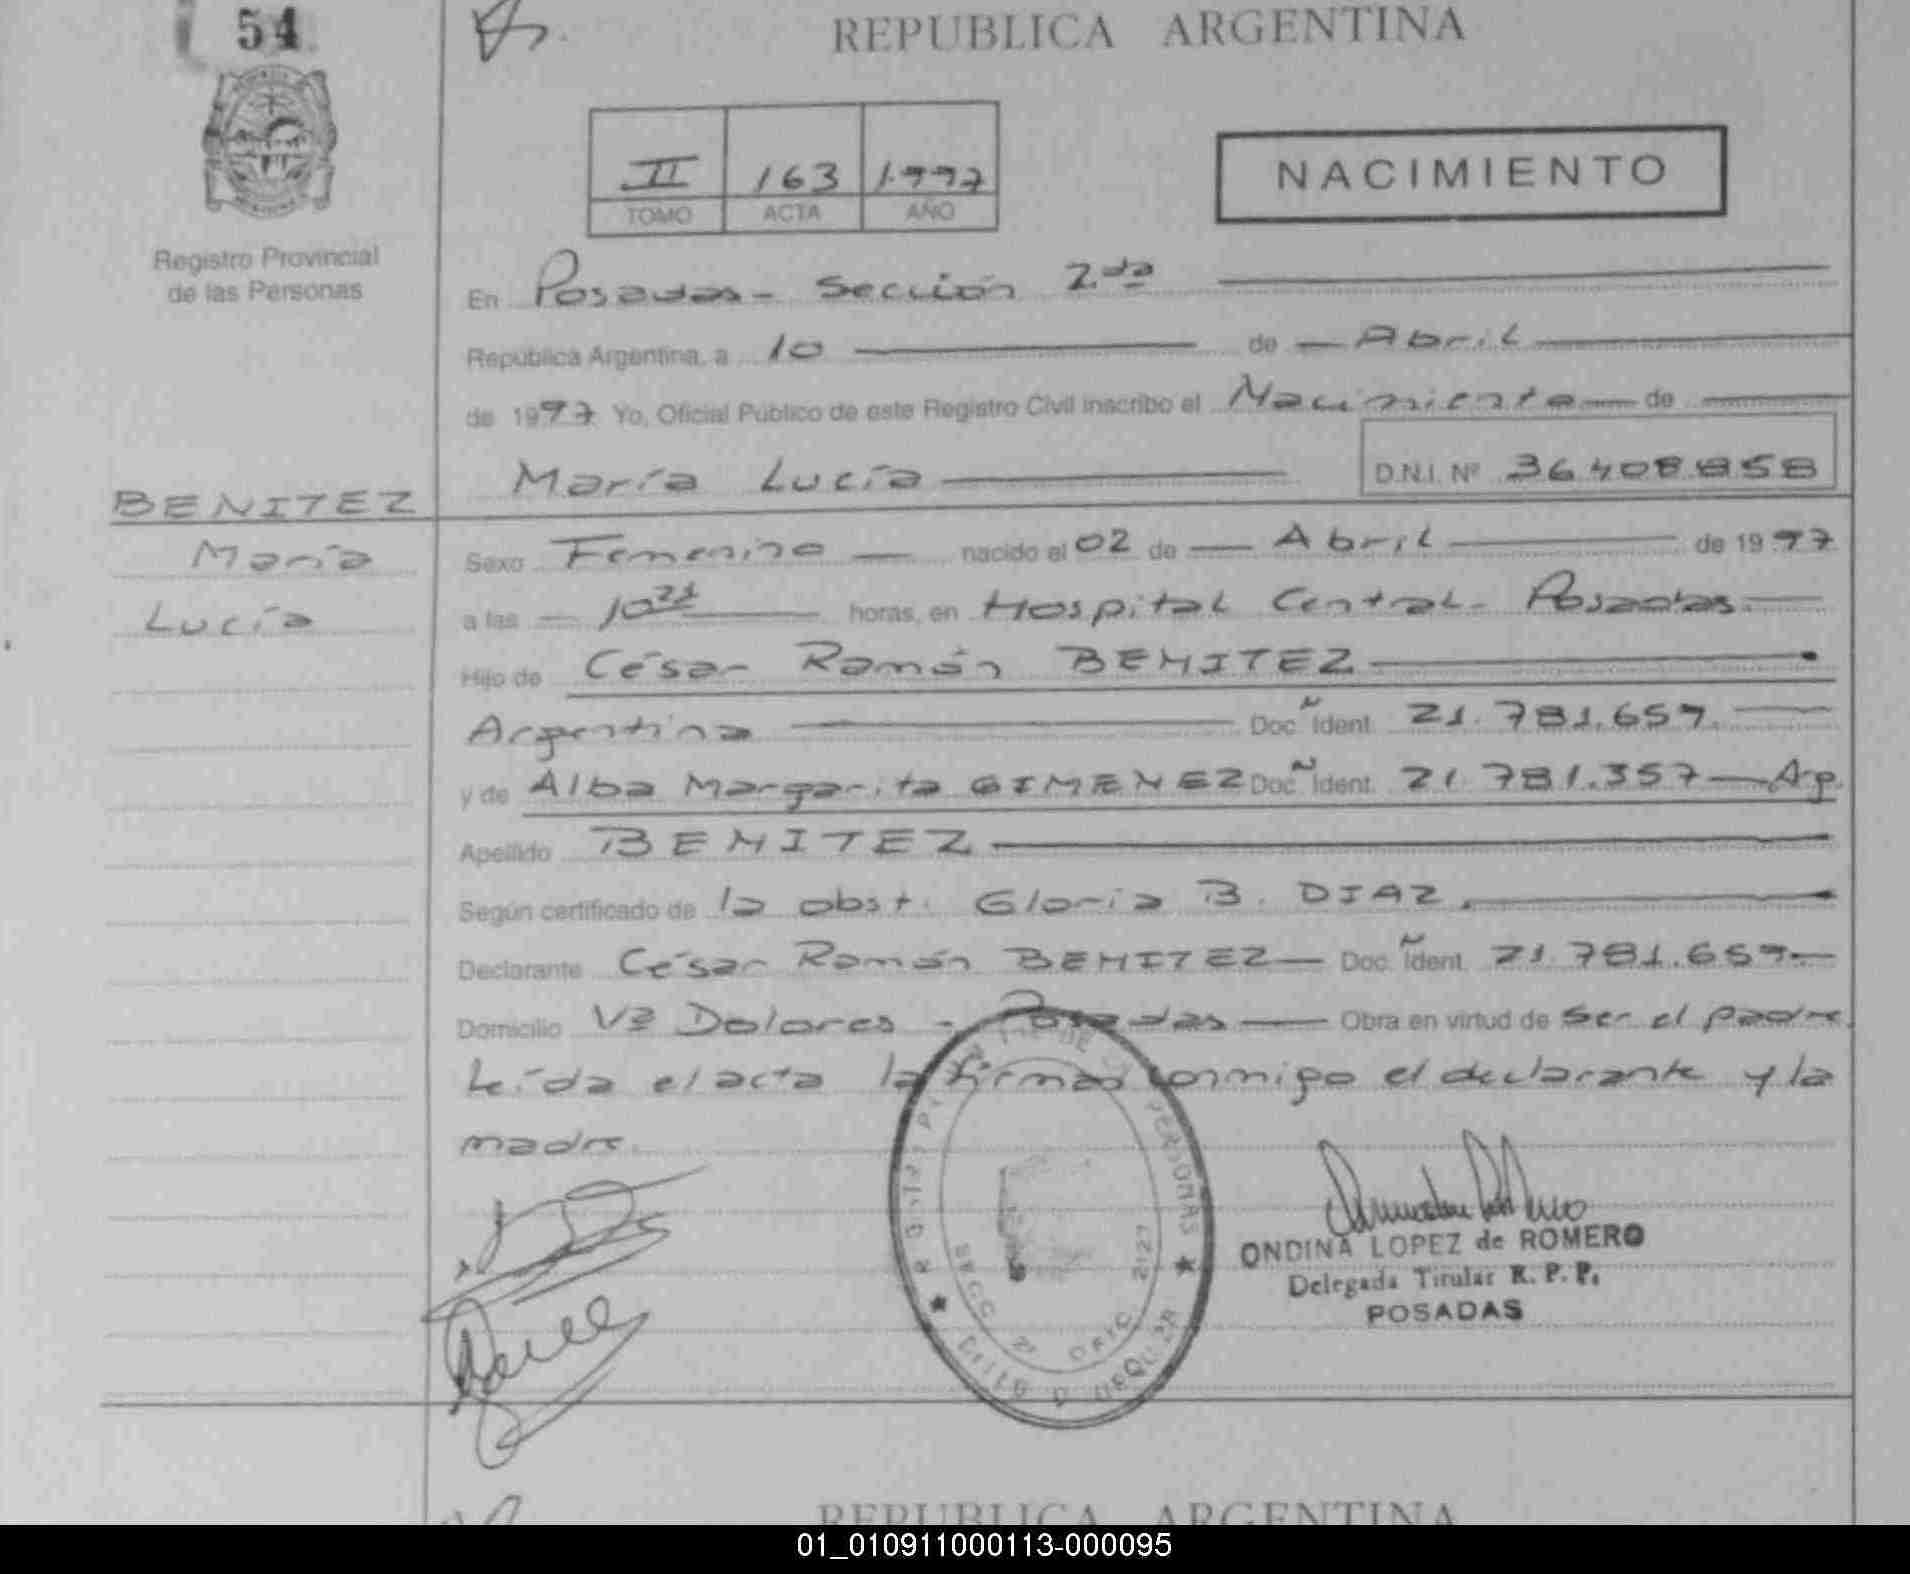 54
REPUBLICA ARGENTINA
II 163 1.997
TOMO ACTA AÑO
NACIMIENTO
Registro Provincial
de las Personas
En Posadas - Sección 2da
República Argentina, a 10 de Abril
de 1997 Yo, Oficial Público de este Registro Civil inscribo el Nacimiento de
María Lucía D.N.I. Nº 36.408.858
BENITEZ
María
Lucía
Sexo Femenino nacido el 02 de Abril de 1997
a las 10 horas, en Hospital Central - Posadas.
Hijo de César Ramón BENITEZ
Argentina Doc. Ident. 21.781.659.
y de Alba Margarita GIMENEZ Doc. Ident. 21.781.357 Arg.
Apellido BENITEZ
Según certificado de la obst. Gloria B. DIAZ.
Declarante César Ramón BENITEZ Doc. Ident. 21.781.659.
Domicilio Vª Dolores - Posadas Obra en virtud de ser el padre.
Leída el acta la firman conmigo el declarante y la
madre.
ONDINA LOPEZ de ROMERO
Delegada Titular R. P. P.
POSADAS
REPUBLICA ARGENTINA
01_010911000113-000095